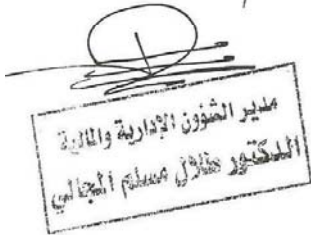 مدير الشؤون الإدارية والمالية
الدكتور طلال مسلم المجالي